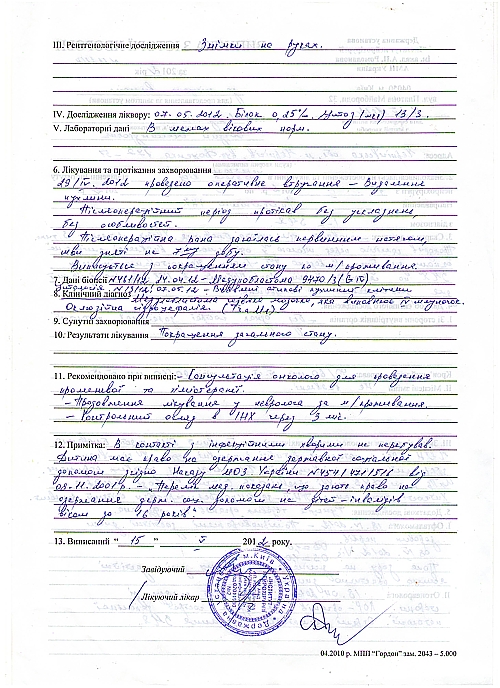 III. Рентгенологічне дослідження Знімки на руках.
IV. Дослідження ліквору: 07.05.2012. Білок 0,25‰, Цитоз 13/3.
V. Лабораторні дані В межах вікових норм.
6. Лікування та протікання захворювання
29/IV. 2012 проведено оперативне втручання – Видалення
пухлини.
Післяопераційний період протікав без ускладнень
без особливостей.
Післяопераційна рана загоїлась первинним натягом,
шви зняті на 7 добу.
Виписується з покращенням стану за м/проживання.
7. Дані біопсії
8. Клінічний діагноз
Оклюзійна гідроцефалія.
9. Супутні захворювання
10. Результати лікування Покращення загального стану.
11. Рекомендовано при виписці: - Консультація онколога для проведення
променевої та хіміотерапії.
- Продовження лікування у невролога за м/проживання.
- Контрольний огляд в ІНХ через 3 міс.
12. Примітка: В контакті з інфекційними хворими не перебував.
Дитина має право на одержання державної соціальної
допомоги згідно Наказу МОЗ України від
08.11.2001 р. - „Перелік мед. показань, що дають право на
одержання держ. соц. допомоги на дітей-інвалідів
віком до 16 років“.
13. Виписаний “ 15 ” V 2012 року.
Завідуючий
Лікуючий лікар
04.2010 р. МПП “Гордон” зам. 2043 – 5.000